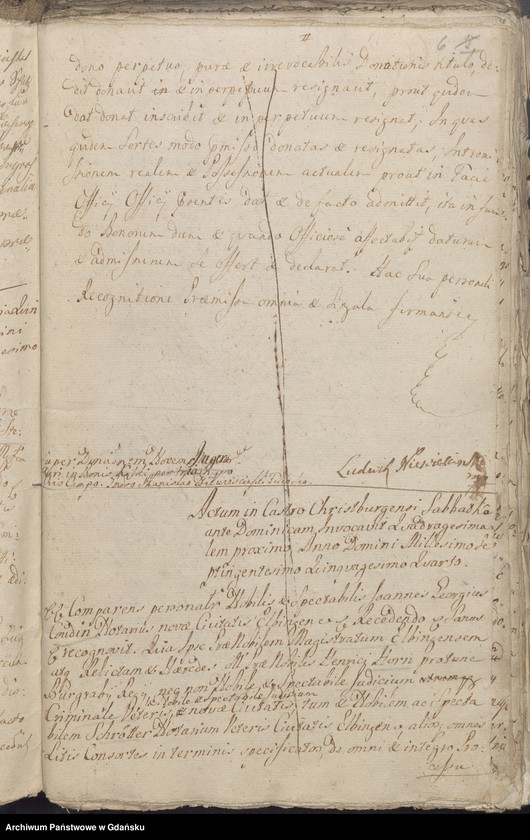 6
dono perpetuo, puræ & irrevocabilis Donationis titulo, de-
dit donavit in & in perpetuum resignavit, prout quidem
dat donat inscribit & in perpetuum resignat, In quas
quidem Sortes modo præmisso donatas & resignatas Intromi-
ssionem realem & Possessionem actualem prout in facie
Officij Officij præsentis dat & de facto admittit, ita in fun-
do Bonorum dum & quando Officiose affectabit daturum
& admissurum se offert & declarat. Hac sua personali
Recognitione Præmissa omnia & singula firmando
Ludwik
Actum in Castro Christburgensi Sabbatho
ante Dominicam Invocavit Quadragesima-
lem proximo Anno Domini Millesimo Se-
ptingentesimo Quinquagesimo Quarto.
Comparens personalr Nobilis & Spectabilis Joannes Georgius
Notarius novæ Civitatis Elbingens Recedendo Sanus
& recognovit. Quia Ipse Præ Nobilem Magistratum Elbingensem
atq Relictam & Hæredes olim præ Nobilis Henrici Horn pro tunc
Burgrabij Regij, nec non Nobile & Spectabile Judicium
Nobile & Spectabile Judicium
Criminale Veteris & novæ Civitatis, tum & Nobilem ac Specta
bilem Schrötter Notarium Veteris Civitatis Elbingens, aliosq omnes
Litis Consortes in terminis specificatos, de omni & integro Pro-
cessu
Archiwum Państwowe w Gdańsku